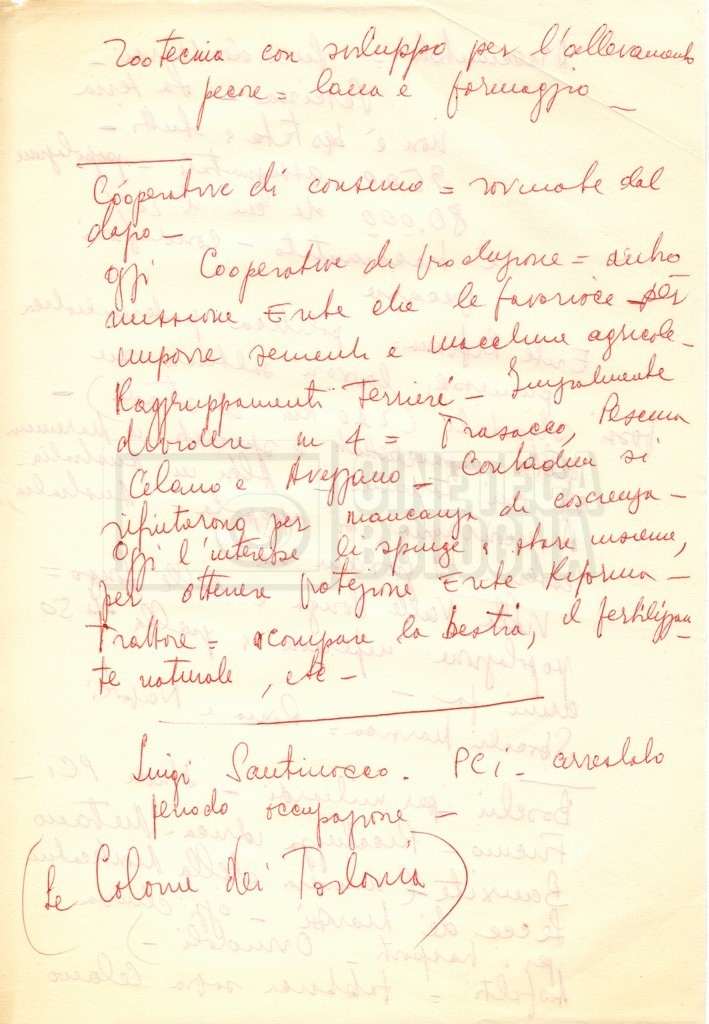 Zootecnia con sviluppo per l'allevamento
pecore = lana e formaggio –
Cooperative di consumo = rovinate dal
dopo –
Oggi Cooperative di produzione = dietro
missione Ente che le favorisce per
imporre sementi e macchine agricole –
Raggruppamenti Terrieri –
dividere in 4 = Trasacco, Pescina
Celano e Avezzano – Contadini si
rifiutarono per mancanza di coscienza –
Oggi l'interesse li spinge a stare insieme,
per ottenere protezione Ente Riforma –
Trattore = scompare la bestia, il fertilizzan-
te naturale, etc –
Luigi Santirocco. PCi – arrestato
periodo occupazione –
(Le Colonie dei Torlonia)
CINETECA
BOLOGNA